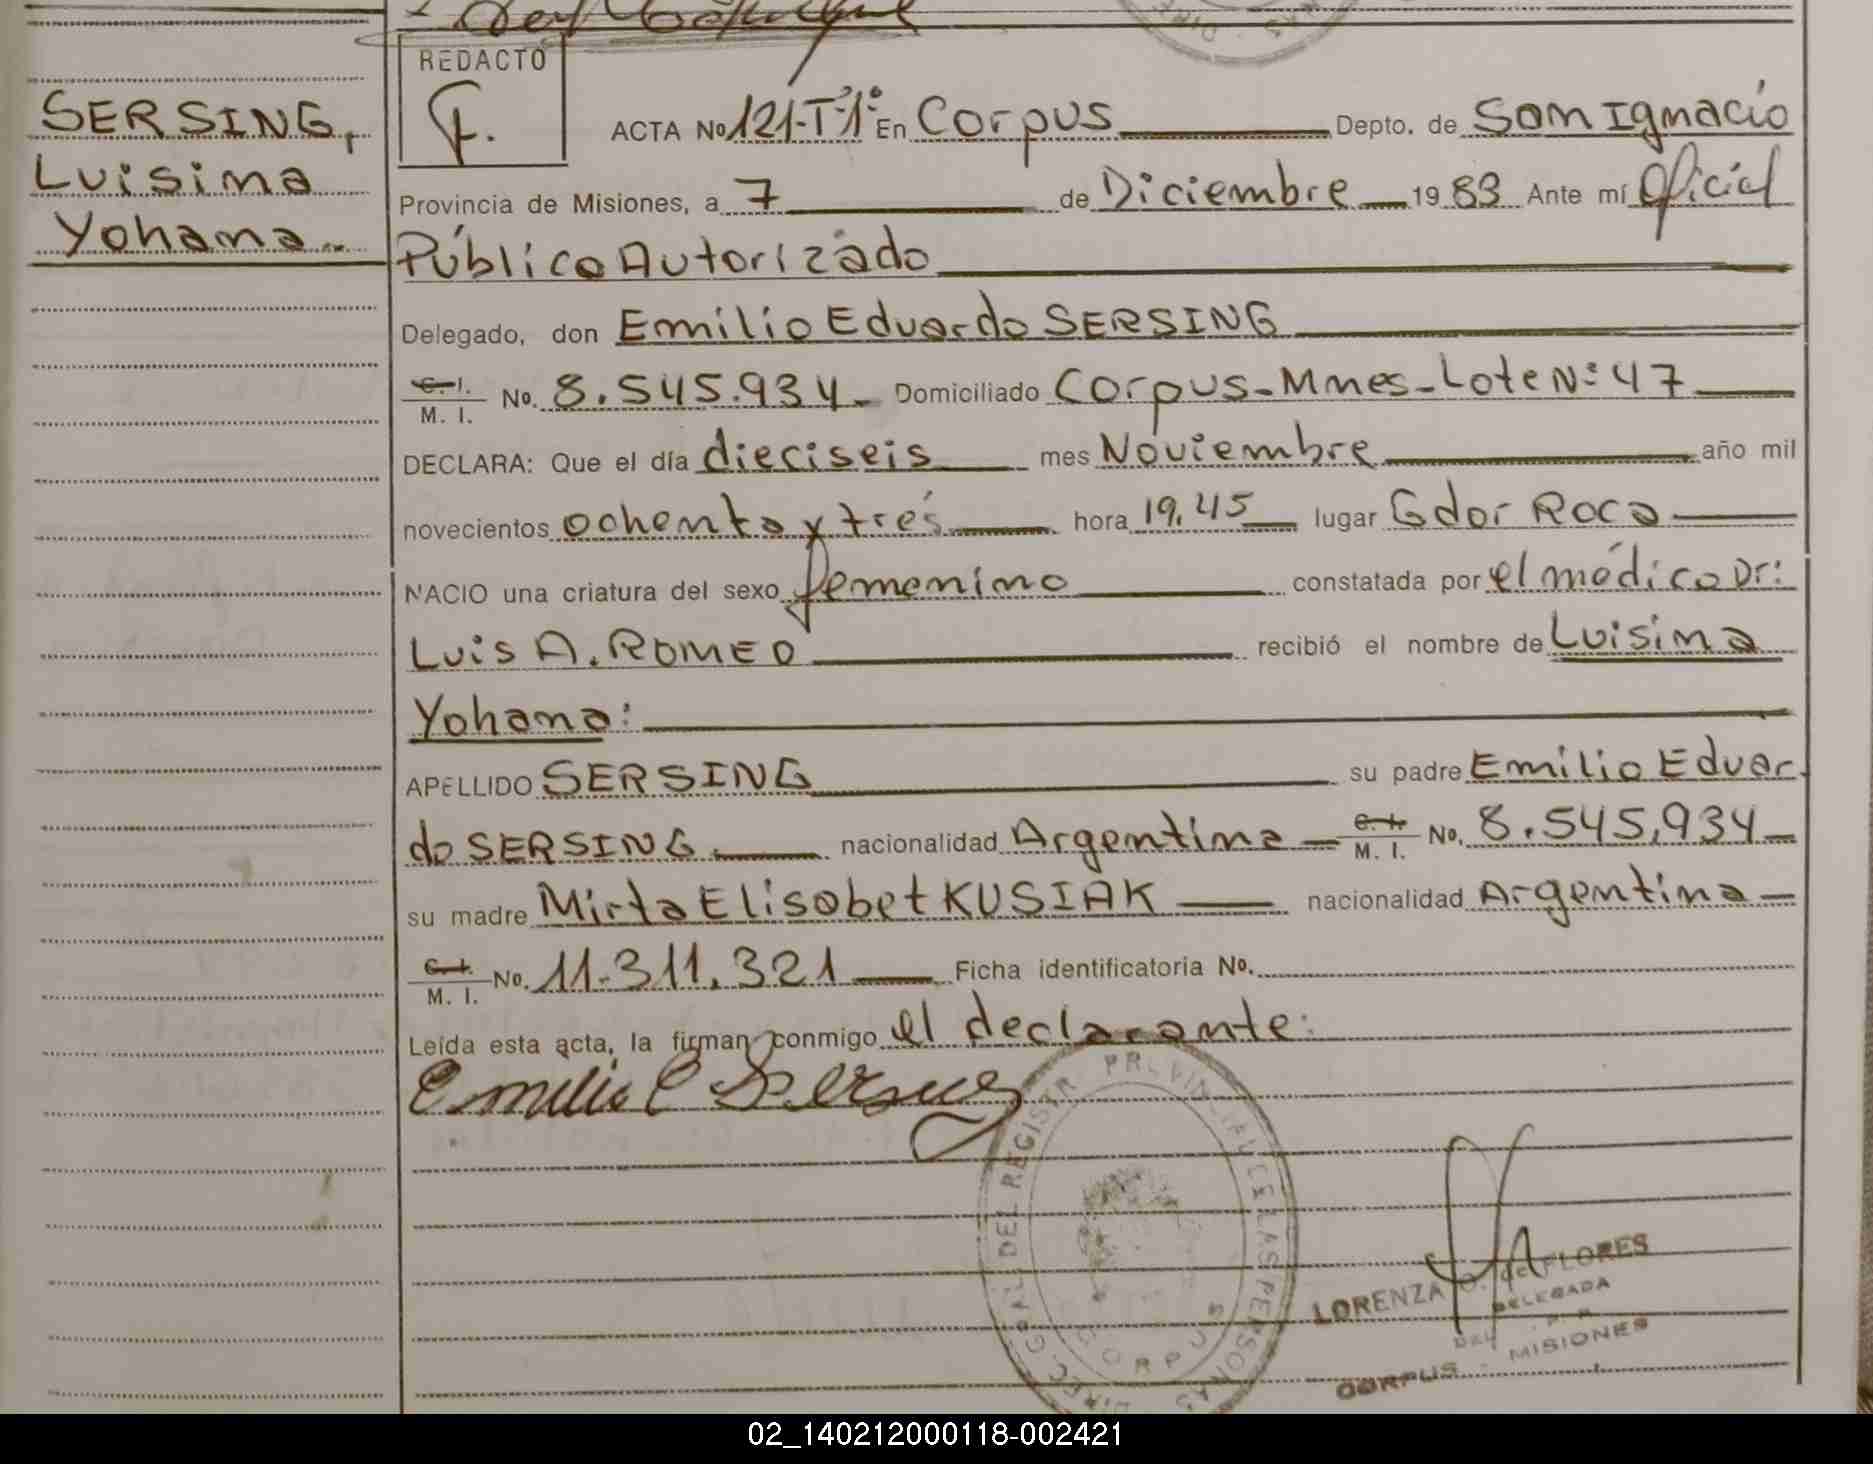 REDACTO
F.
SERSING,
Luisina
Yohana
ACTA No 121-T-1º En Corpus Depto. de San Ignacio
Provincia de Misiones, a 7 de Diciembre 1983 Ante mí Oficial
Público Autorizado
Delegado, don Emilio Eduardo SERSING
C. I. M. I. No. 8.545.934 Domiciliado Corpus-Mnes-Lote Nº 47
DECLARA: Que el día dieciseis mes Noviembre año mil
novecientos ochenta y tres hora 19.45 lugar Gdor Roca
NACIO una criatura del sexo femenino constatada por el médico Dr:
Luis A. ROMEO recibió el nombre de Luisina
Yohana:
APELLIDO SERSING su padre Emilio Eduar
do SERSING nacionalidad Argentina C. I. M. I. No. 8.545.934
su madre Mirta Elisabet KUSIAK nacionalidad Argentina
C. I. M. I. No. 11.311.321 Ficha identificatoria No.
Leída esta acta, la firman conmigo el declarante:
Emilio E Sersing
DIREC. GRAL. DEL REGISTR. PROVINCIAL DE LAS PERSONAS
CORPUS
LORENZA de FLORES
DELEGADA
MISIONES
CORPUS
02_140212000118-002421